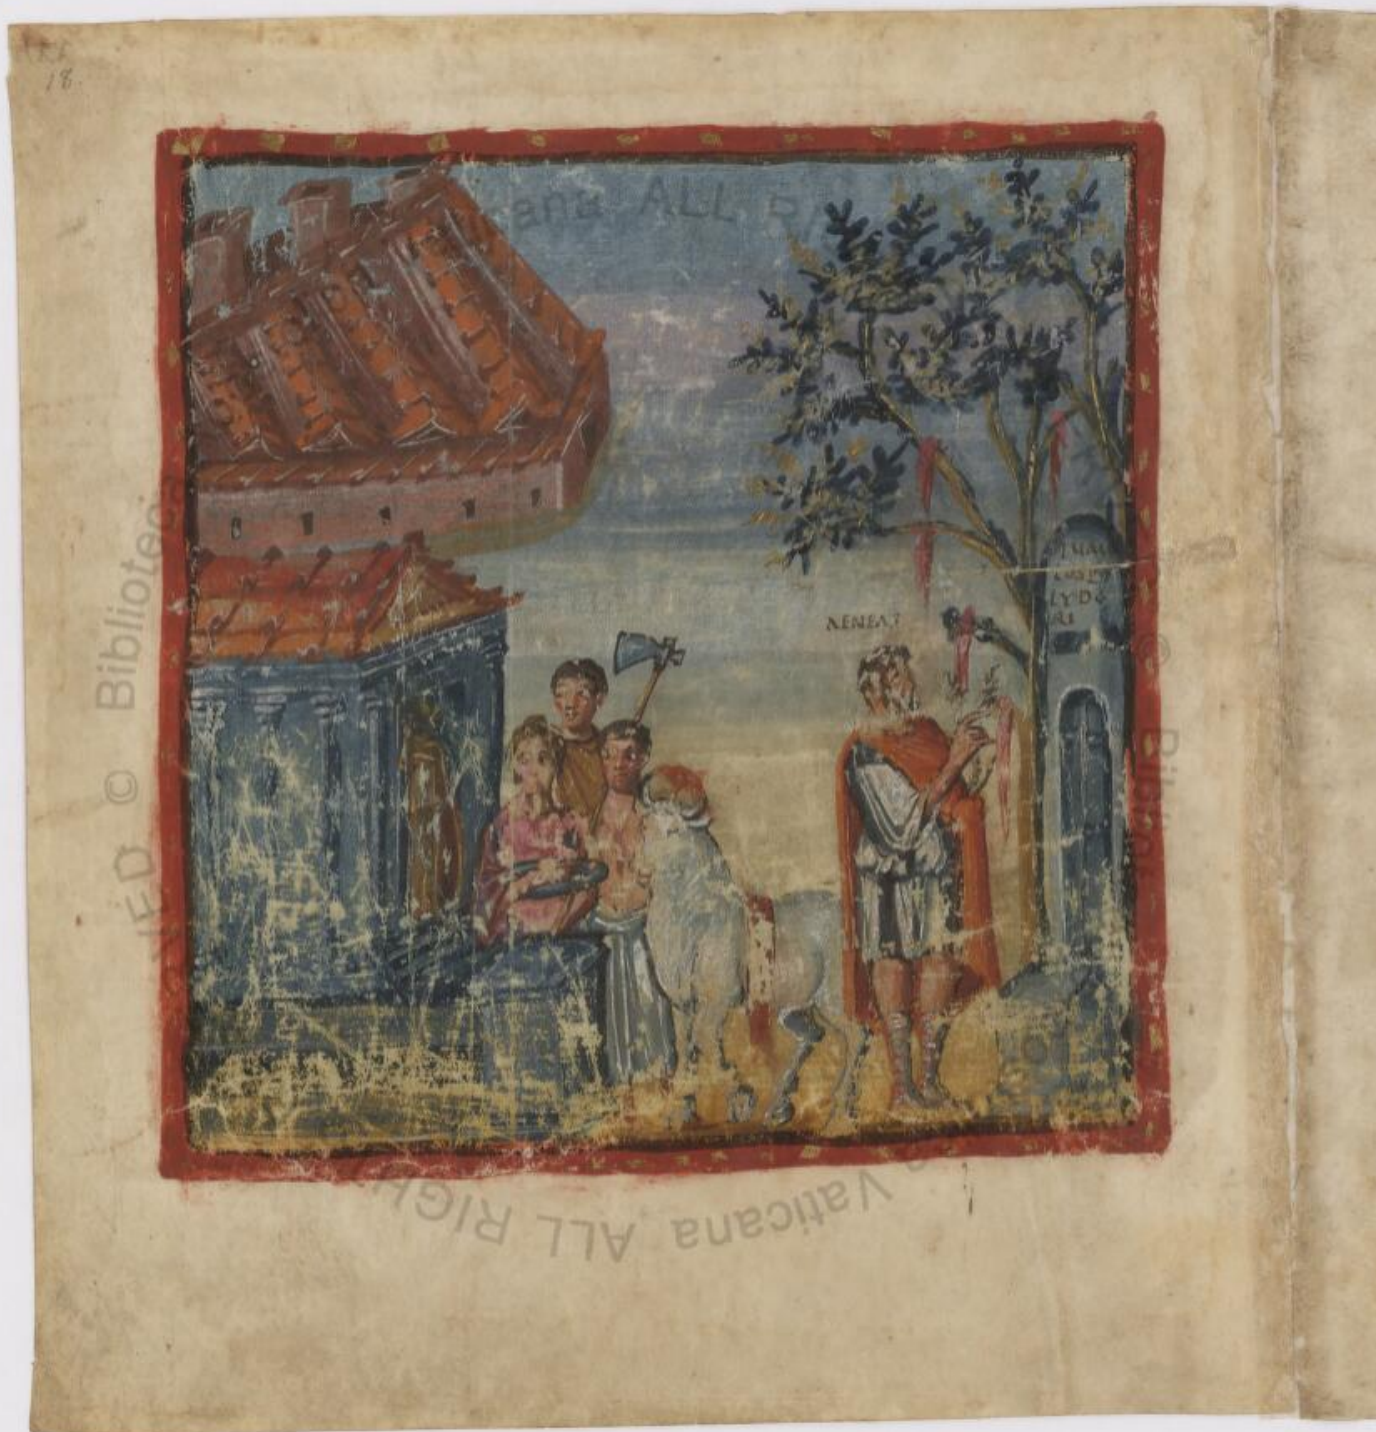 18.
AENEAS
TUMU
LUS PO
LYDO
RI
© Biblioteca
Vaticana ALL RIGH
ana ALL R
VED